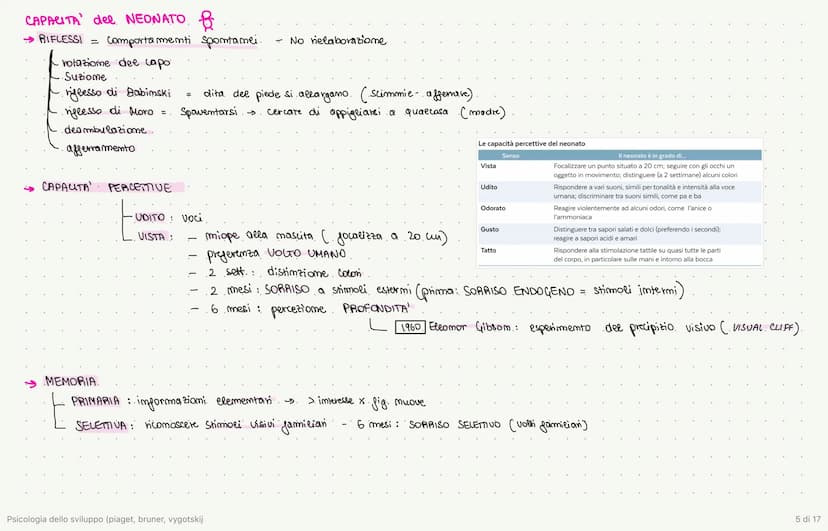 CAPACITA' del NEONATO
→ RIFLESSI = comportamenti spontanei - No rielaborazione
rotazione del capo
suzione
riflesso di Babinski = dita del piede si allargano (scimmie - afferrare)
riflesso di Moro = spaventarsi → cercare di appigliarsi a qualcosa (madre)
deambulazione
afferramento
Le capacità percettive del neonato
Senso Il neonato è in grado di...
Vista Focalizzare un punto situato a 20 cm; seguire con gli occhi un
oggetto in movimento; distinguere (a 2 settimane) alcuni colori
Udito Rispondere a vari suoni, simili per tonalità e intensità alla voce
umana; discriminare tra suoni simili, come pa e ba
Odorato Reagire violentemente ad alcuni odori, come l'anice o
l'ammoniaca
Gusto Distinguere tra sapori salati e dolci (preferendo i secondi);
reagire a sapori acidi e amari
Tatto Rispondere alla stimolazione tattile su quasi tutte le parti
del corpo, in particolare sulle mani e intorno alla bocca
→ CAPACITA' PERCETTIVE
UDITO: voci
VISTA: - miope alla nascita (focalizza a 20 cm)
- preferenza VOLTO UMANO
- 2 sett.: distinzione colori
- 2 mesi: SORRISO a stimoli esterni (prima: SORRISO ENDOGENO = stimoli interni)
- 6 mesi: percezione PROFONDITA'
1960 Eleonor Gibson: esperimento del precipizio visivo (VISUAL CLIFF)
→ MEMORIA
PRIMARIA: informazioni elementari → > interesse x fig. nuove
SELETTIVA: riconoscere stimoli visivi familiari - 6 mesi: SORRISO SELETTIVO (volti familiari)
Psicologia dello sviluppo (piaget, bruner, vygotskij
5 di 17